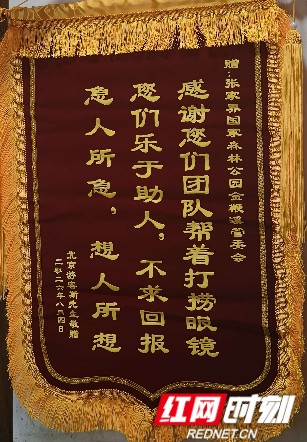 赠：张家界国家森林公园金鞭溪管委会
感谢您们团队帮着打捞眼镜
您们乐于助人，不求回报
急人所急，想人所想
北京游客高先生敬赠
二零二六年八月四日
红网时刻
REDNET.CN